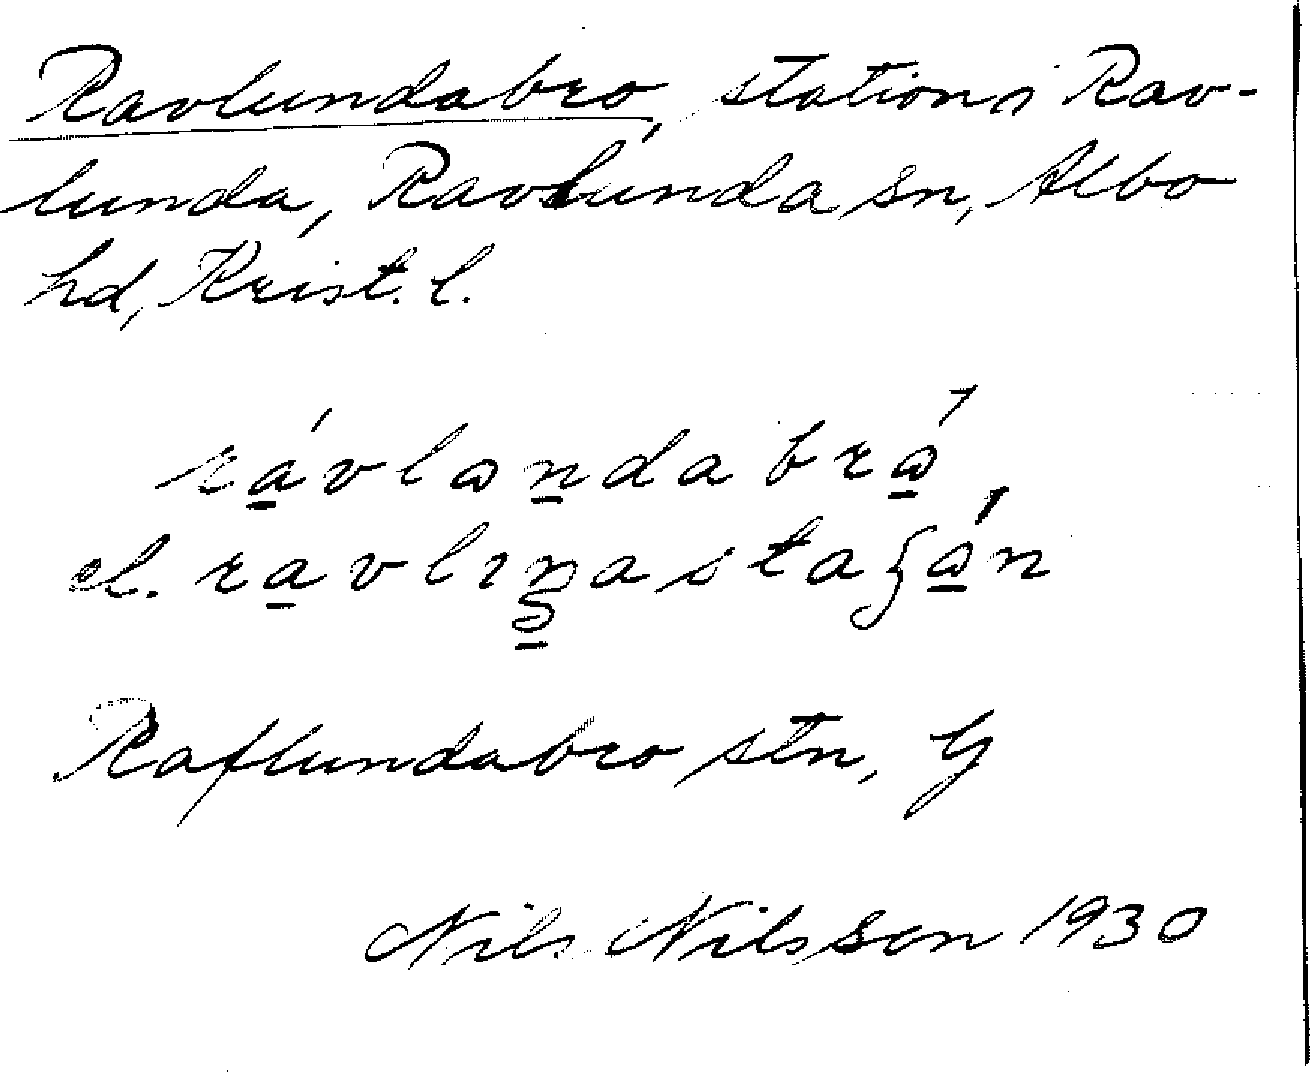 Ravlundabro, station i Rav-
lunda, Ravlunda sn, Albo
hd, Krist. l.
rávlɷndabrɷ́,
el. ravlıŋastaʃɷ́n
Raflundabro stn, G
Nils Nilsson 1930